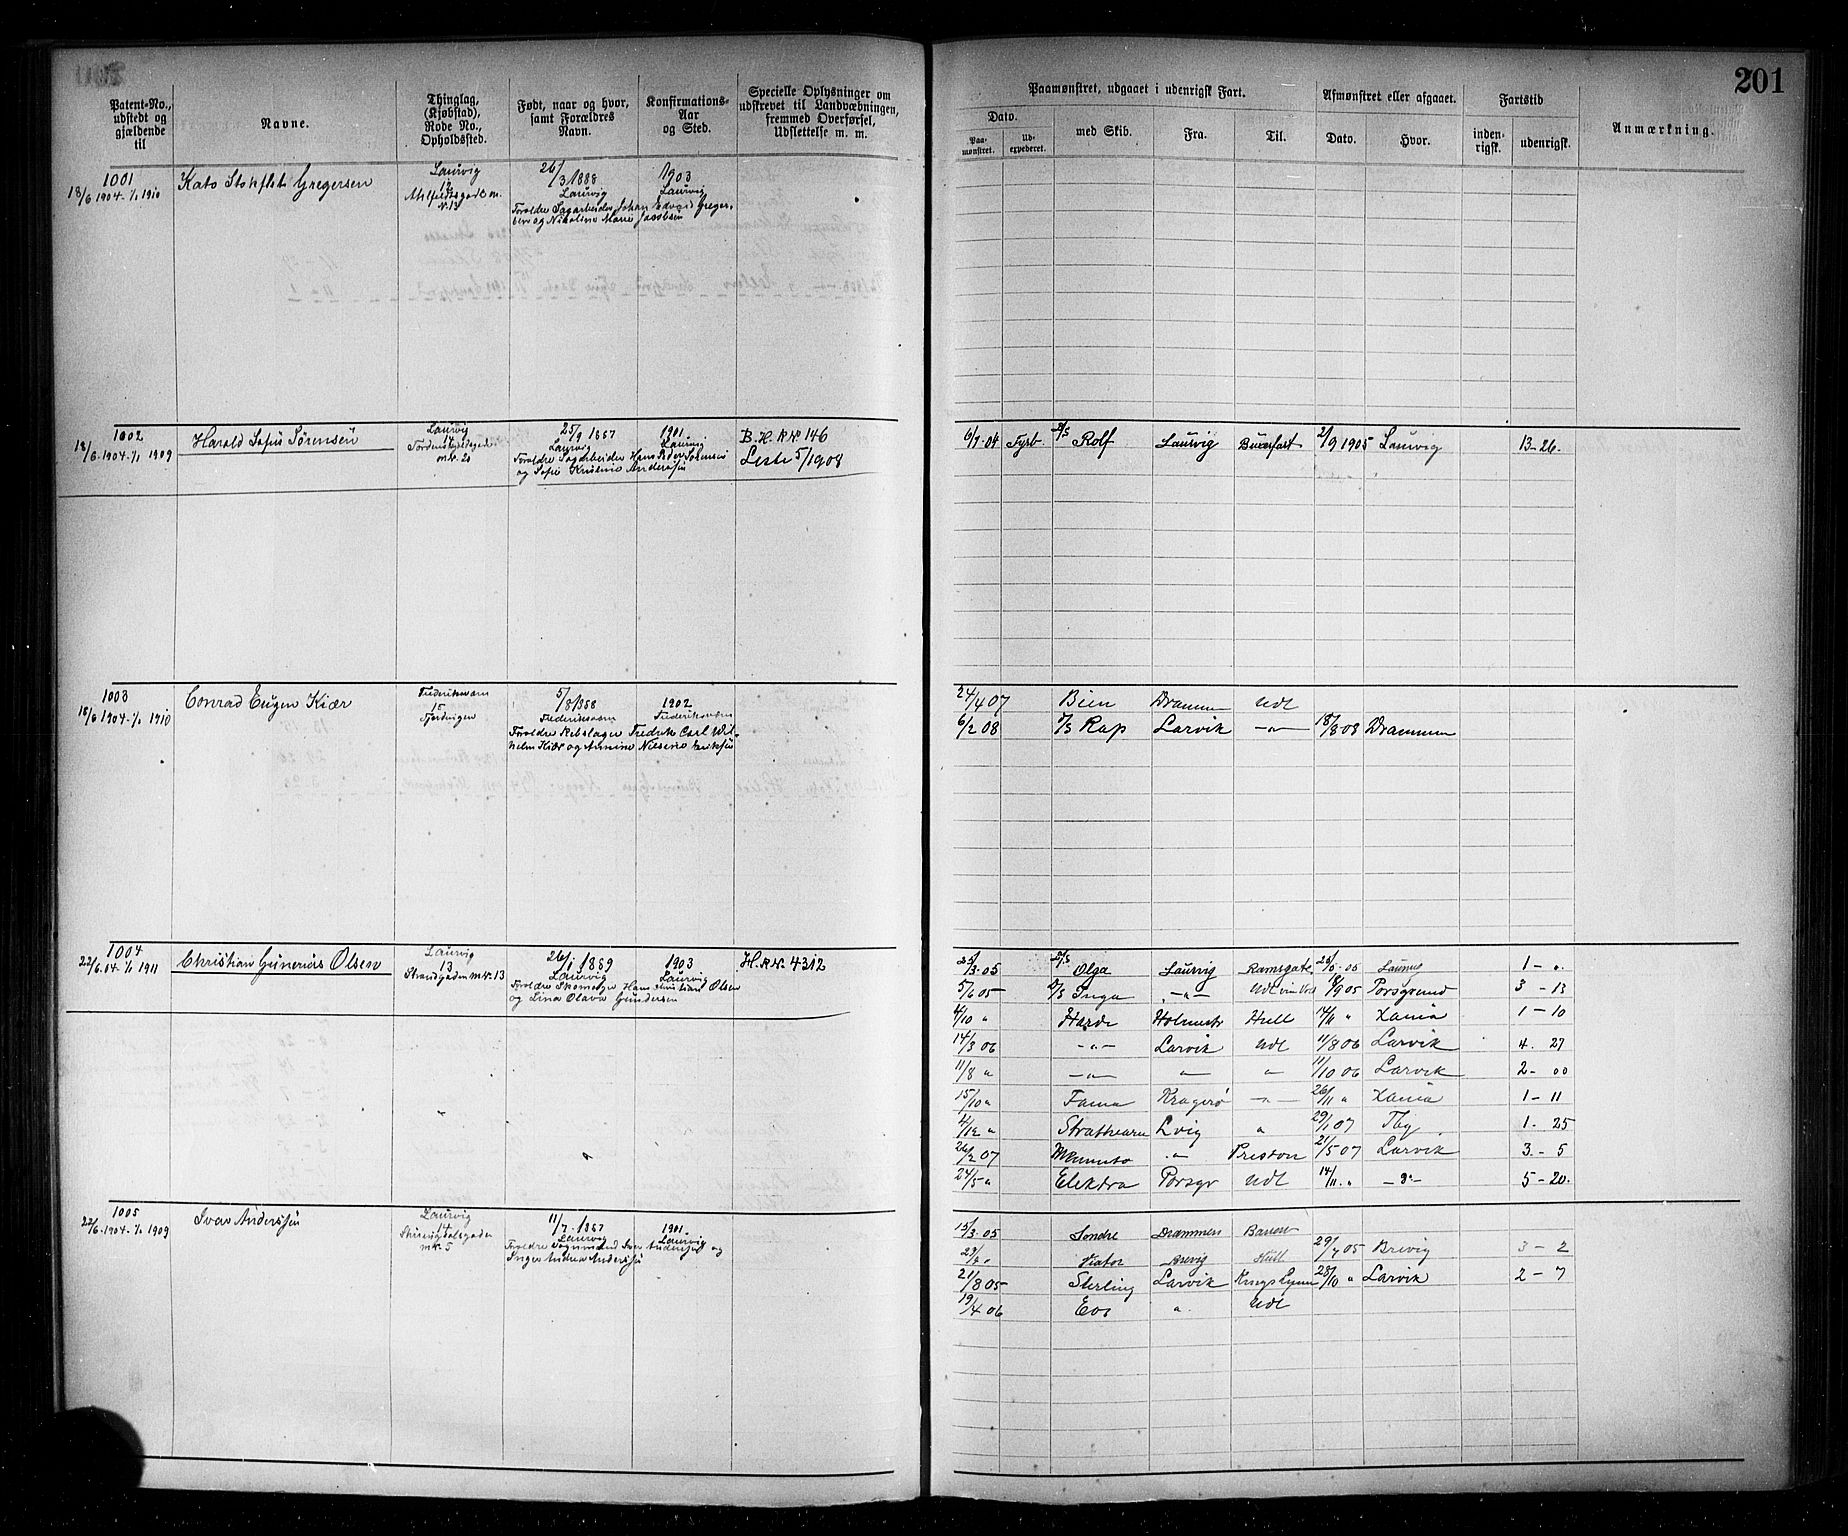 201
Patent-No., udstedt og gjældende til
Navne.
Thinglag, (Kjøbstad), Rode No., Opholdssted.
Født, naar og hvor, samt Forældres Navn.
Konfirmations-Aar og Sted.
Specielle Oplysninger om udskrevet til Landværbningen, fremmed Overførsel, Udslettelse m. m.
Paamønstret, udgaaet i udenrigsk Fart.
Afmønstret eller afgaaet.
Fartstid
Anmærkning.
Dato.
Paa-mønstret.
Ud-expederet.
med Skib.
Fra.
Til.
Dato.
Hvor.
inden-rigsk.
udenrigsk.
1001 Laurvig 26/3 1888 1903
18/6 1904-1/1 1910 Kato Gregersen 12 Laurvig Laurvig
No 13 Forældre Sagarbeider Johan Edvard Greger-
sen og Nikoline Marie Jacobsen
1002 Laurvig 25/9 1887 1901 B. H. R No 146
18/6 1904-1/1 1909 Harald Sofus Sørensen 14 Laurvig Laurvig Liste 5/1908
Forældre Sagarbeider Hans Peder Sørensen
og Sofie Kristine Andersen
6/7 04 D/S Rolf Laurvig 2/9 1905 Laurvig 13-26.
1003 Fredriksværn 5/8 1888 1902
18/6 1904-1/1 1910 Conrad Eugen Kiær 15 Fredriksværn Fredriksværn
Forældre Rebslager Fredrik Carl Wil-
helm Kiær og
24/4 07 Bien Drammen Udl
6/2 08 D/S Rap Larvik -"- 18/8 08 Drammen
1004 Laurvig 26/1 1889 1903 H. R No. 4312
22/6. 04-1/1 1911 Christian Gunerius Olsen 13 Laurvig Laurvig
Strandgaden m No. 13 Forældre Skomager Hans Christian Olsen
og Lina Olava Gundersen
25/3 05 D/S Olga Laurvig Ramsgate 25/5 05 Laurvig 1 - "
5/6 05 D/S Inga -"- 18/9 05 Porsgrund 3 - 13
4/10 " Holmestr Hull 14/11 " Xania 1 - 10
14/3 06 -"- Larvik Udl 11/8 06 Larvik 4. 27
11/8 " -"- " " 11/10 06 Larvik 2- 00
15/10 " Fama Kragerø -"- 26/11 " Xania 1 - 11
4/12 " Strathearn Lvig " 29/1 07 Tbg 1. 25
26/2 07 " Preston 21/5 07 Larvik 3. - 5
24/5 " Elektra Porsgr Udl 14/11. " -"- 5 - 20.
1005 Laurvig 11/7 1887 1901
22/6 1904-1/1 1909 Iver Anderssen 14 Laurvig Laurvig
m No. 5 Forældre Iver Anderssen og
Inger Andrea Anderssen
15/3 05 Søndre Drammen
Viator Brevig Hull 29/7 05 Brevig 3 - 2
21/8 05 Sterling Larvik Kings Lynn 28/10 " Larvik 2 - 7
19/4 06 Eos " Udl